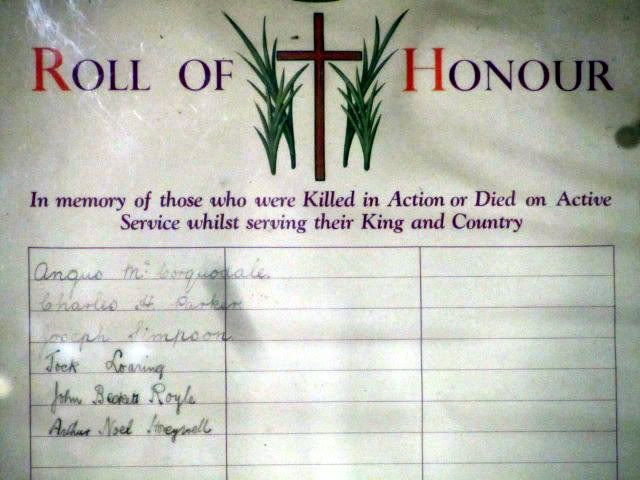 ROLL OF HONOUR
In memory of those who were Killed in Action or Died on Active
Service whilst serving their King and Country
Angus Mc Corquodale
Charles H. Parker
Joseph Simpson
Jock Loaring
John Beckett Royle
Arthur Noel